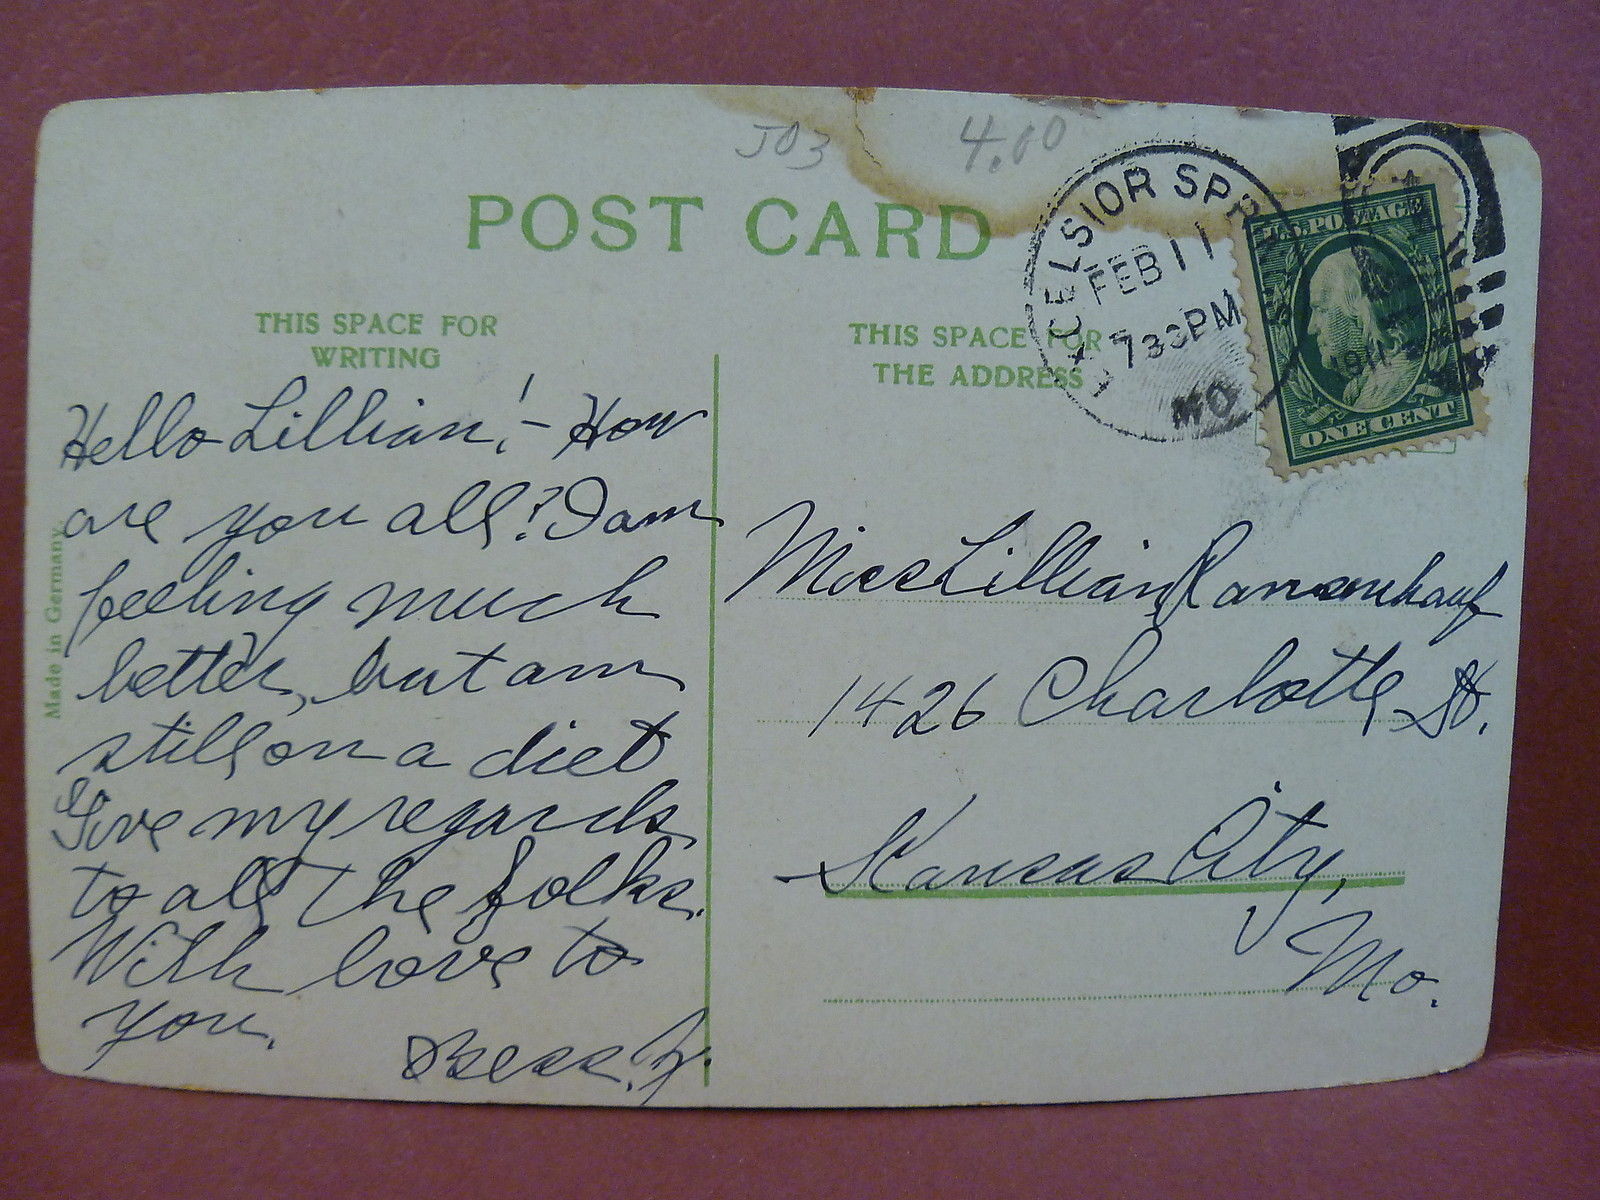 J03 4.00
POST CARD
CELSIOR SPR
FEB 11
730PM
MO
1911
U.S. POSTAGE
ONE CENT
THIS SPACE FOR
WRITING
THIS SPACE FOR
THE ADDRESS
Made in Germany
Hello Lillian! - How
are you all? I am
feeling much
better, but am
still on a diet
Give my regards
to all the folks.
With love to
you.
Bess. Y.
Miss Lillian
1426 Charlotte St.
Kansas City,
Mo.